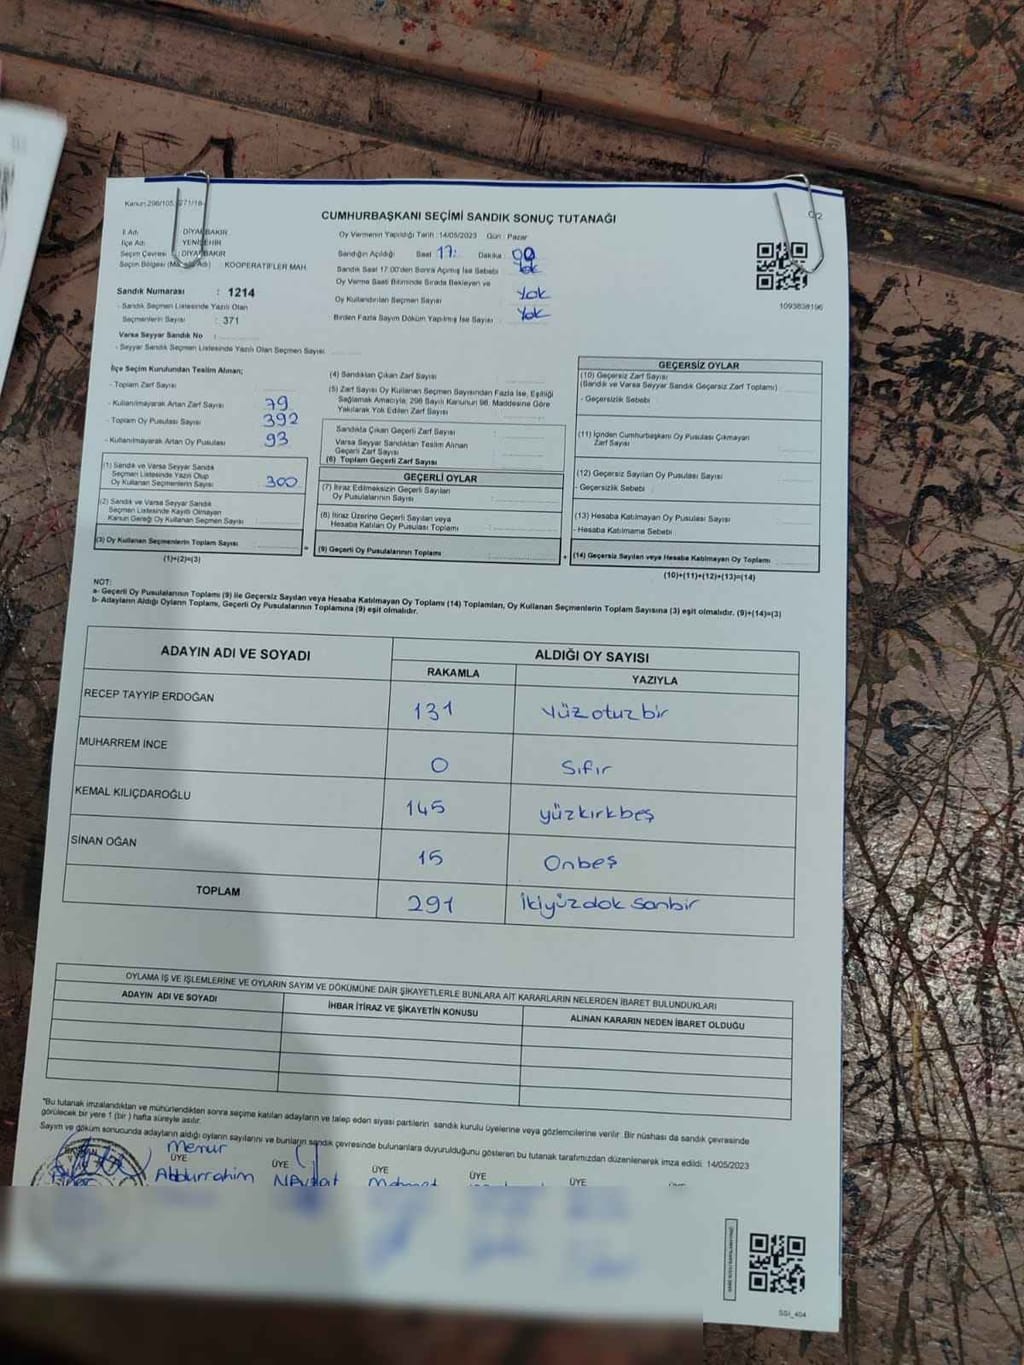 Kanun 298/105, 271/16
CUMHURBAŞKANI SEÇİMİ SANDIK SONUÇ TUTANAĞI
İl Adı : DİYARBAKIR
İlçe Adı : YENİŞEHİR
Seçim Çevresi : DİYARBAKIR
Seçim Bölgesi : KOOPERATİFLER MAH.
Sandık Numarası : 1214
- Sandık Seçmen Listesinde Yazılı Olan
Seçmenlerin Sayısı : 371
Varsa Seyyar Sandık No :
- Seyyar Sandık Seçmen Listesinde Yazılı Olan Seçmen Sayısı
Oy Vermenin Yapıldığı Tarih : 14/05/2023 Gün : Pazar
Sandığın Açıldığı Saat 17: Dakika : 00
Sandık Saat 17:00'den Sonra Açılmış İse Sebebi Yok
Oy Verme Saati Bitiminde Sırada Bekleyen ve
Oy Kullandırılan Seçmen Sayısı Yok
Birden Fazla Sayım Döküm Yapılmış İse Sayısı Yok
1093838196
İlçe Seçim Kurulundan Teslim Alınan;
- Toplam Zarf Sayısı
- Kullanılmayarak Artan Zarf Sayısı 79
- Toplam Oy Pusulası Sayısı 392
- Kullanılmayarak Artan Oy Pusulası 93
(1) Sandık ve Varsa Seyyar Sandık
Seçmen Listesinde Yazılı Olup
Oy Kullanan Seçmenlerin Sayısı 300
(2) Sandık ve Varsa Seyyar Sandık
Seçmen Listesinde Kayıtlı Olmayan
Kanun Gereği Oy Kullanan Seçmen Sayısı
(3) Oy Kullanan Seçmenlerin Toplam Sayısı
(1)+(2)=(3)
(4) Sandıktan Çıkan Zarf Sayısı
(5) Zarf Sayısı Oy Kullanan Seçmen Sayısından Fazla İse, Eşitliği
Sağlamak Amacıyla; 298 Sayılı Kanunun 98. Maddesine Göre
Yakılarak Yok Edilen Zarf Sayısı
Sandıkta Çıkan Geçerli Zarf Sayısı
Varsa Seyyar Sandıktan Teslim Alınan
Geçerli Zarf Sayısı
(6) Toplam Geçerli Zarf Sayısı
GEÇERLİ OYLAR
(7) İtiraz Edilmeksizin Geçerli Sayılan
Oy Pusulalarının Sayısı
(8) İtiraz Üzerine Geçerli Sayılan veya
Hesaba Katılan Oy Pusulası Toplamı
(9) Geçerli Oy Pusulalarının Toplamı
GEÇERSİZ OYLAR
(10) Geçersiz Zarf Sayısı
(Sandık ve Varsa Seyyar Sandık Geçersiz Zarf Toplamı)
- Geçersizlik Sebebi :
(11) İçinden Cumhurbaşkanı Oy Pusulası Çıkmayan
Zarf Sayısı
(12) Geçersiz Sayılan Oy Pusulası Sayısı
- Geçersizlik Sebebi :
(13) Hesaba Katılmayan Oy Pusulası Sayısı
- Hesaba Katılmama Sebebi :
(14) Geçersiz Sayılan veya Hesaba Katılmayan Oy Toplamı
(10)+(11)+(12)+(13)=(14)
NOT:
a- Geçerli Oy Pusulalarının Toplamı (9) ile Geçersiz Sayılan veya Hesaba Katılmayan Oy Toplamı (14) Toplamları, Oy Kullanan Seçmenlerin Toplam Sayısına (3) eşit olmalıdır. (9)+(14)=(3)
b- Adayların Aldığı Oyların Toplamı, Geçerli Oy Pusulalarının Toplamına (9) eşit olmalıdır.
ADAYIN ADI VE SOYADI ALDIĞI OY SAYISI
RAKAMLA YAZIYLA
RECEP TAYYİP ERDOĞAN 131 yüzotuzbir
MUHARREM İNCE 0 Sıfır
KEMAL KILIÇDAROĞLU 145 yüzkırkbeş
SİNAN OĞAN 15 Onbeş
TOPLAM 291 ikiyüzdoksanbir
OYLAMA İŞ VE İŞLEMLERİNE VE OYLARIN SAYIM VE DÖKÜMÜNE DAİR ŞİKAYETLERLE BUNLARA AİT KARARLARIN NELERDEN İBARET BULUNDUKLARI
ADAYIN ADI VE SOYADI İHBAR İTİRAZ VE ŞİKAYETİN KONUSU ALINAN KARARIN NEDEN İBARET OLDUĞU
*Bu tutanak imzalandıktan ve mühürlendikten sonra seçime katılan adayların ve talep eden siyasi partilerin sandık kurulu üyelerine veya gözlemcilerine verilir. Bir nüshası da sandık çevresinde
görülecek bir yere 1 (bir) hafta süreyle asılır.
Sayım ve döküm sonucunda adayların aldığı oyların sayılarını ve bunların sandık çevresinde bulunanlara duyurulduğunu gösteren bu tutanak tarafımızdan düzenlenerek imza edildi. 14/05/2023
Memur
ÜYE ÜYE ÜYE ÜYE ÜYE
Abdurrahim Mehmet
SSI_404